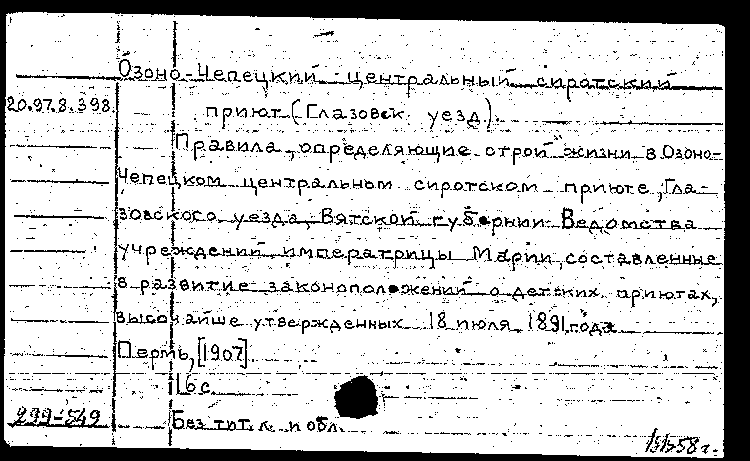 Озоно-Чепецкий центральный сиротский
20.97.8.398.
приют (Глазовск. уезд).
Правила, определяющие строй жизни в Озоно-
Чепецком центральном сиротском приюте, Гла-
зовского уезда, Вятской губернии Ведомства
учреждений императрицы Марии, составленные
в развитие законоположений о детских приютах,
высочайше утвержденных 18 июля 1891 года
Пермь, [1907].
16 с.
299-549
Без тит. л. и обл.
58 г.